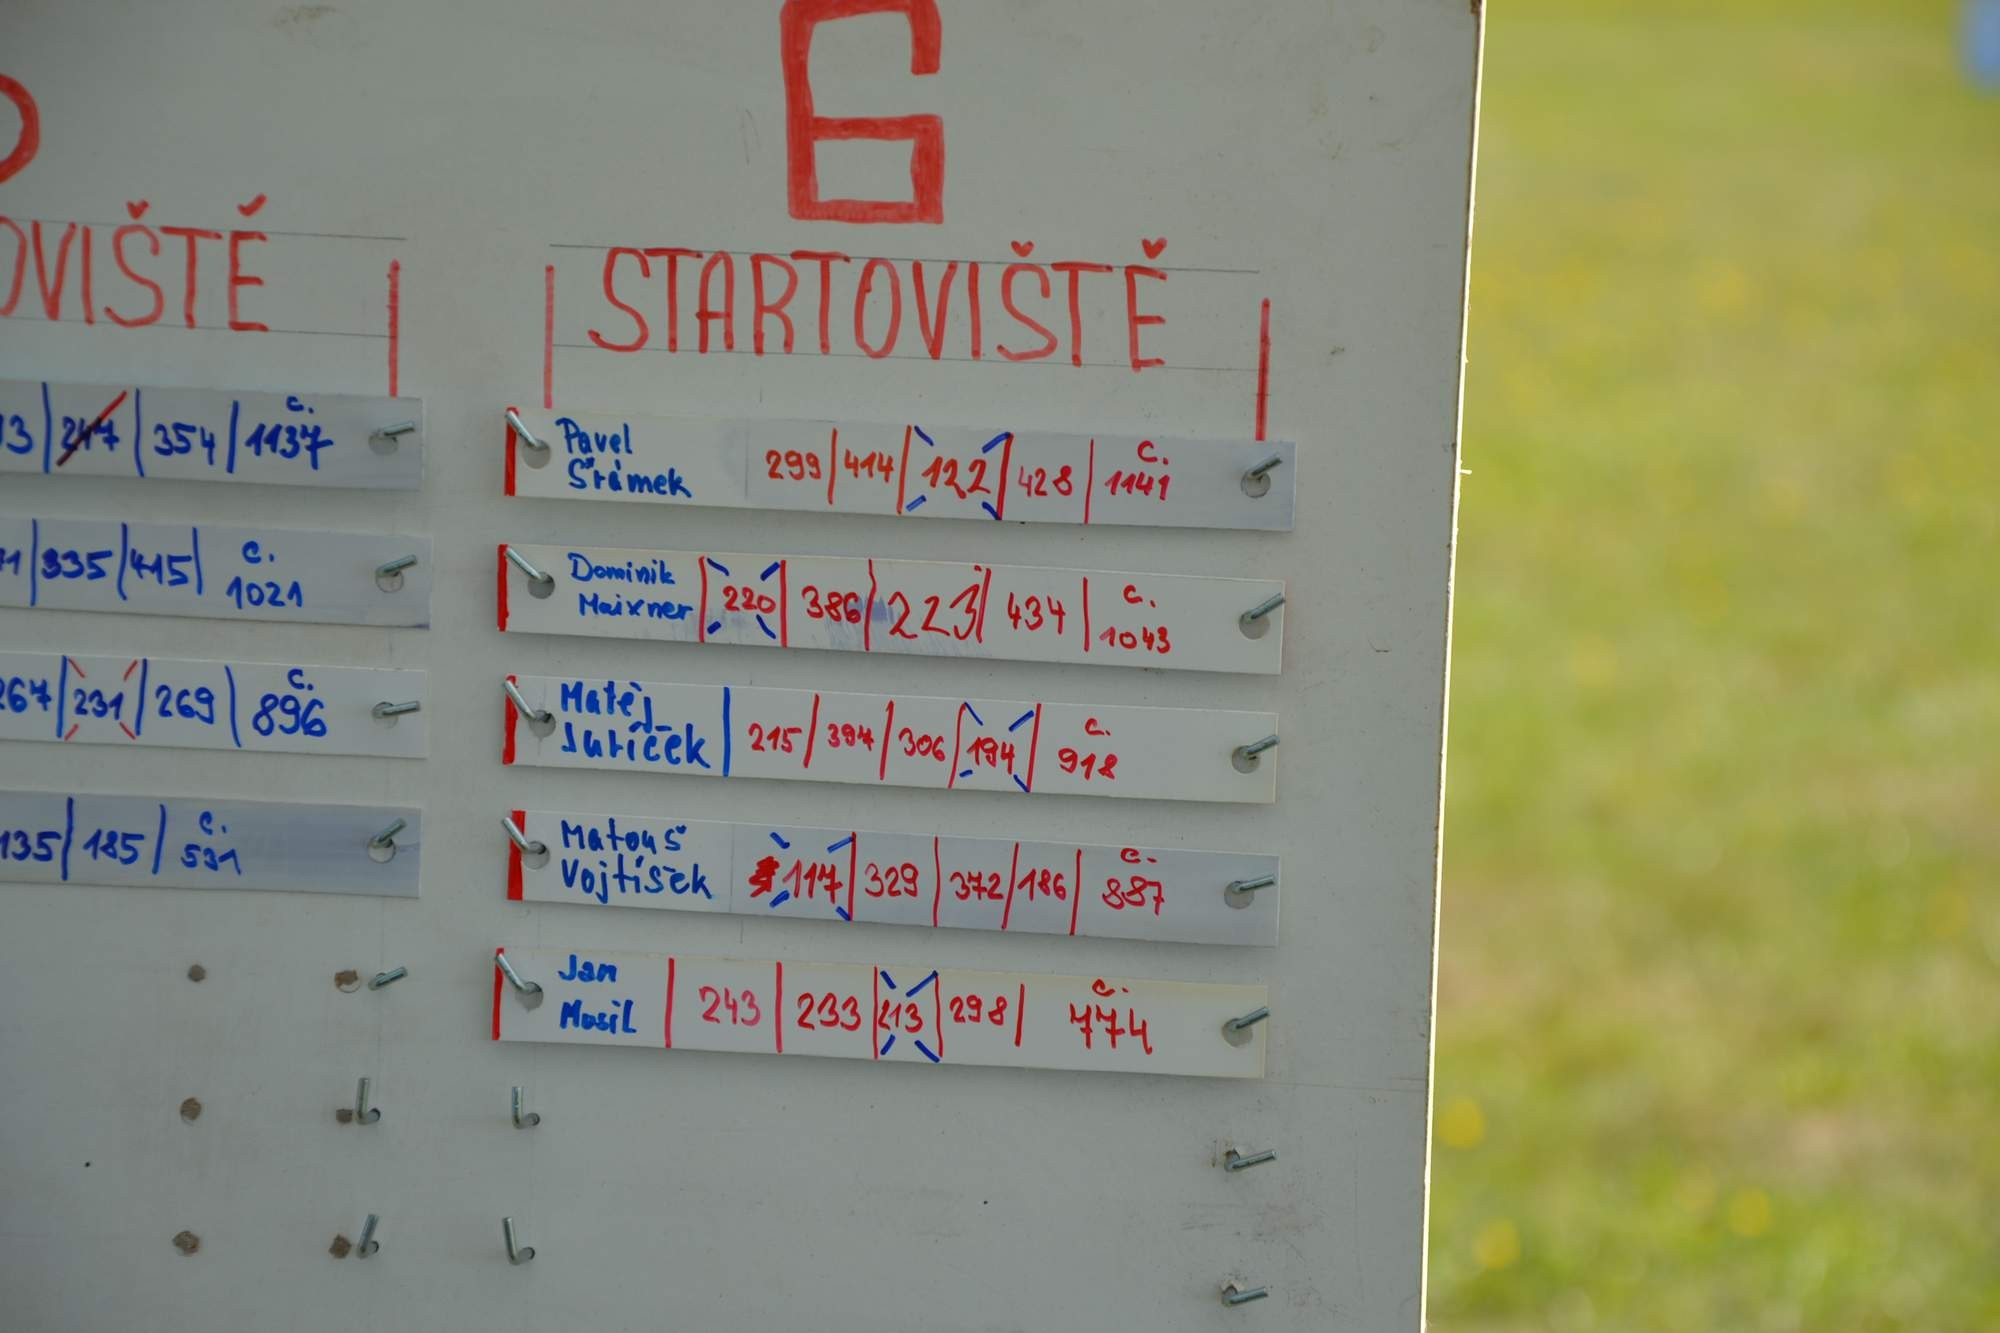 6
OVIŠTĚ
STARTOVIŠTĚ
13 | 247 | 354 | č. 1137
335 | 415 | c. 1021
267 | 231 | 269 | c. 896
135 | 185 | c. 531
Pavel
Šrámek 299 | 414 | 122 | 428 | C. 1141
Dominik
Maixner | 220 | 386 | 223 | 434 | c. 1043
Matěj
Juříček | 215 | 397 | 306 | 194 | c. 918
Matouš
Vojtíšek 117 | 329 | 372 | 186 | c. 887
Jan
Musil | 243 | 233 | 213 | 298 | c. 774